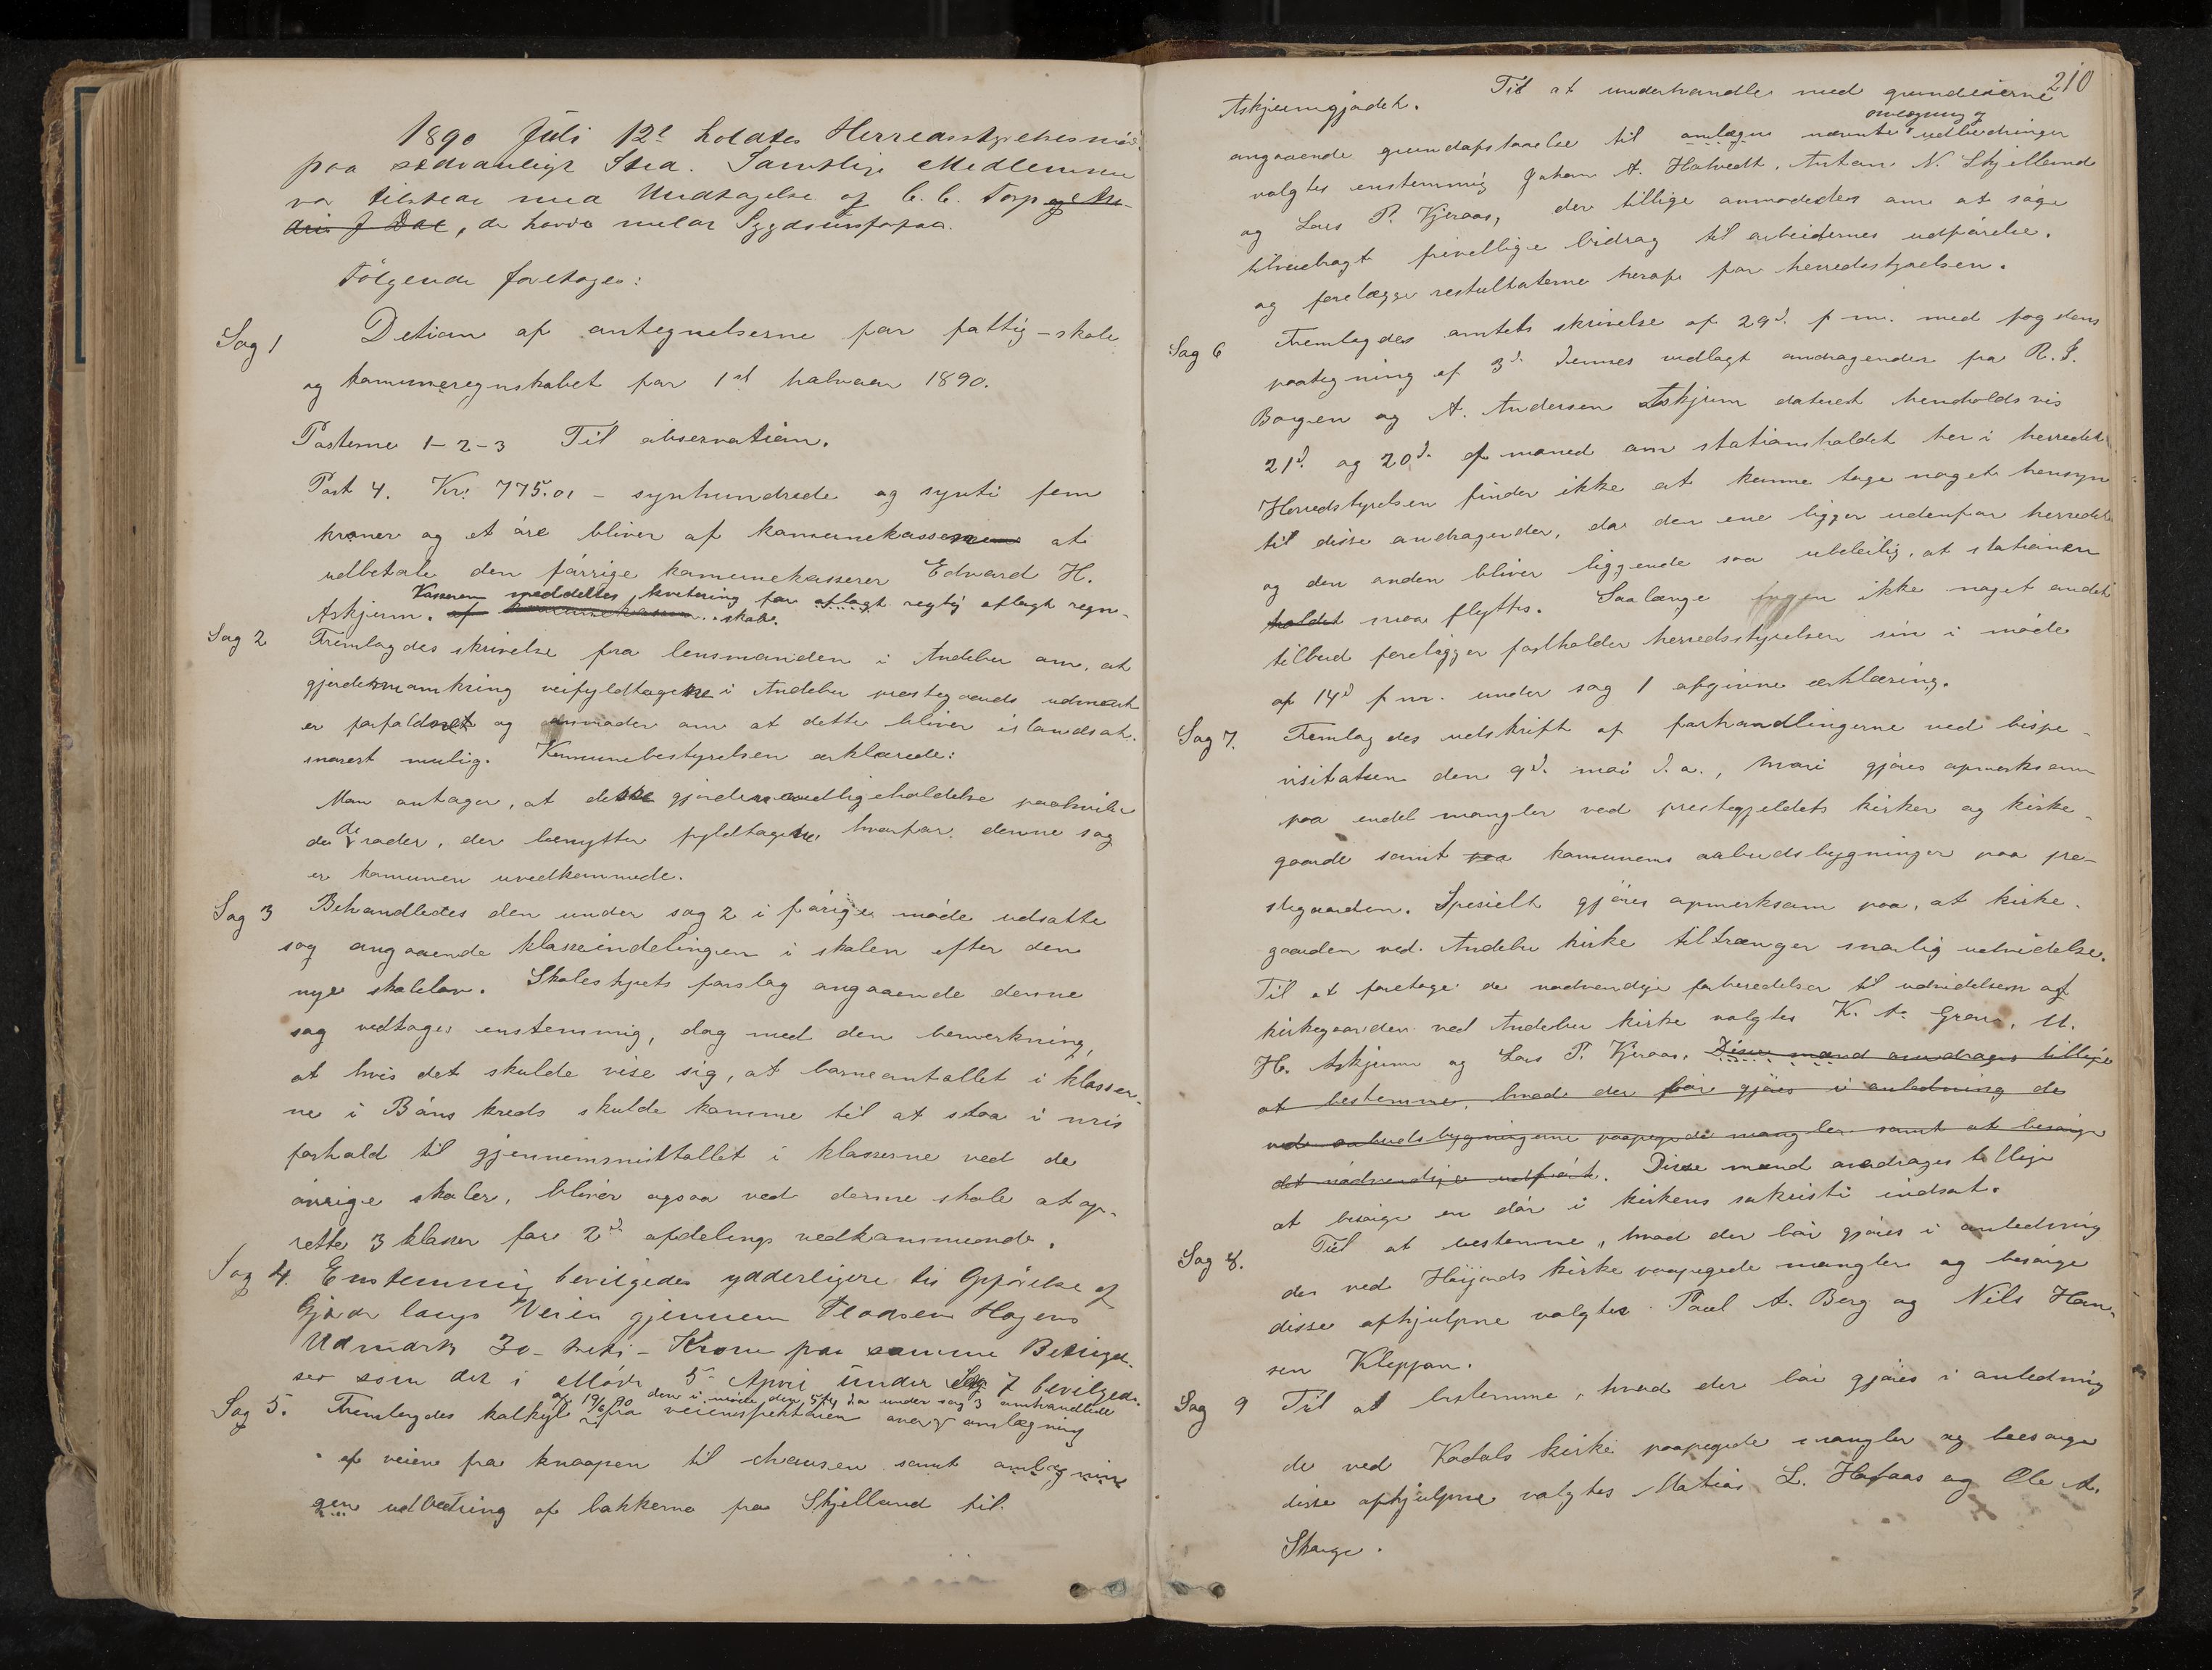 1890 Juli 12t holdtes Herredsstyrelsesmöde
paa sedvanligt Sted. Samtlige Medlemmer
var tilstede med Undtagelse af C. C. Torp og An-
dreas J Dal, da havde meldt Sygdomsforfald.
Følgende foretoges:
Sag 1 Detion af antegnelserne for fattig-skole
og komuneregnskabet for 1st halvaar 1890.
Posterne 1-2-3 Til observation.
Post 4. Kr. 775.01 - synhundrede og synti fem
kroner og et øre bliver af komunekassen at
udbetale den førrige komunekasserer Edvard H.
Kasseren meddeltes kvitering for aflagt regtig aflagt regn-
Askjem. af komunekassen skab.
Sag 2 Fremlagdes skrivelse fra lensmanden i Andebu om, at
gjerdet omkring veifyldtagene i Andebu prestegaards udmark
er forfaldent og anmoder om at dette bliver istandsat
snarest mulig. Komunebestyrelsen erklærede:
Man antager, at dette gjerdes vedligeholdelse paahviler
de roder, der benytter fyldtagene, hvorfor denne sag
er komunen uvedkommede.
Sag 3 Behandledes den under sag 2 i førige møde udsatte
sag angaaende klasseindelingen i skolen efter den
nye skolelov. Skolestyrets forslag angaaende denne
sag vedtoges enstemmig, dog med den bemerkning,
at hvis det skulde vise sig, at barneantallet i klasser-
ne i Bøns kreds skulde komme til at staa i mis
forhold til gjennemsnittallet i klasserne ved de
øvrige skoler, bliver ogsaa ved denne skole at op-
rette 3 klasser for 2d afdelings vedkommende.
Sag 4. Enstemmig bevilgedes ydderligere til Opførelse af
Gjærde langs Veien gjennem Flaasen Hagens
Udmark 30 - treti - Kroner paa samme Betingel-
ser som det i Møde 5 April under Sag 7 bevilgede.
af 19/6 90 den i møde den 5/4 d.a under sag 3 omhandlede
Sag 5. Fremlagdes kalkyle fra veiinspektøren over omlægning
af veien fra knaapen til chausen samt omlægnin
gen udbedring af bakkerne fra Skjelland til
210
Askjemgjødet. Til at underhandle med grundeierne
omlegning og
angaaende grundafstaaelse til omlægne nævnte udbedringer
valgtes enstemmig Johan A. Holvedt, Anton N. Skjelland
og Lars P. Kjeraas, der tillige anmodedes om at søge
tilveiebragt frivellige bidrag til arbeidernes udførelse.
og forelægge restultaterne heraf for herredsstyrelsen.
Sag 6 Fremlagdes amtets skrivelse af 29d. f m. med fogdens
paategning af 3d. dennes vedlagt andragender fra R. J.
Borgen og A. Andersen Askjem dateret henholdsvis
21d. og 20d. f maned om stationsholdet her i herredet
Herredstyrelsen finder ikke at kunne tage noget hensyn
til disse andragender, da den ene ligger udenfor herredet
og den anden bliver liggende saa ubeleilig, at stationen
holdet maa flyttes. Saalænge ikke noget andet
tilbud foreligger fastholder herredsstyrelsen sin i møde
af 14d f m. under sag 1 afgivne erklæring.
Sag 7. Fremlagdes udskrift af forhandlingerne ved bispe-
visitatsen den 9d. mai d.a., hvori gjøres opmerksom
paa endel mangler ved prestegjeldets kirker og kirke-
gaarde samt paa komunens aabudsbygninger paa pre-
stegaarden. Spesielt gjøres opmerksom paa, at kirke-
gaarden ved Andebu kirke tiltrænger snarlig udvidelse.
Til at foretage de nødvendige forberedelser til udvidelsen af
kirkegaarden ved Andebu kirke valgtes K. A. Gravd, M.
H. Askjem og Lars P. Kjeraas. Disse mænd anmodrages tillige
at bestemme, hvad der bør gjøres i anledning de
ved aabudsbygningerne paapegede mangler samt at besørge
det nødvendige udført. Disse mænd andrages tillige
at besørge en dør i kirkens sakristi indsat.
Sag 8. Til at bestemme, hvad der bør gjøres i anledning
der ved Høijords kirke paapegede mangler og besørge
disse afhjulpne valgtes Paul A. Berg og Nils Han-
sen Kleppan.
Sag 9 Til at bestemme, hvad der bør gjøres i anledning
de ved Kodals kirke paapegede mangler og beesørge
disse afhjulpne valgtes Matias L. Hafaas og Ole A.
Skauge.